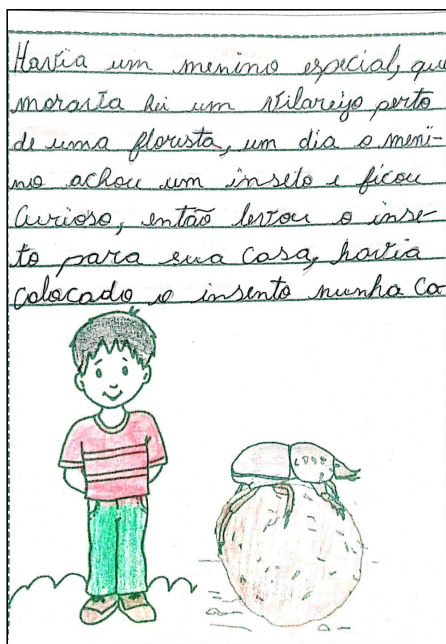 Havia um menino especial, que
morava em um vilarejo perto
de uma floresta, um dia o meni-
no achou um inseto e ficou
curioso, então levou o inse-
to para sua casa, havia
colocado o insento numha ca